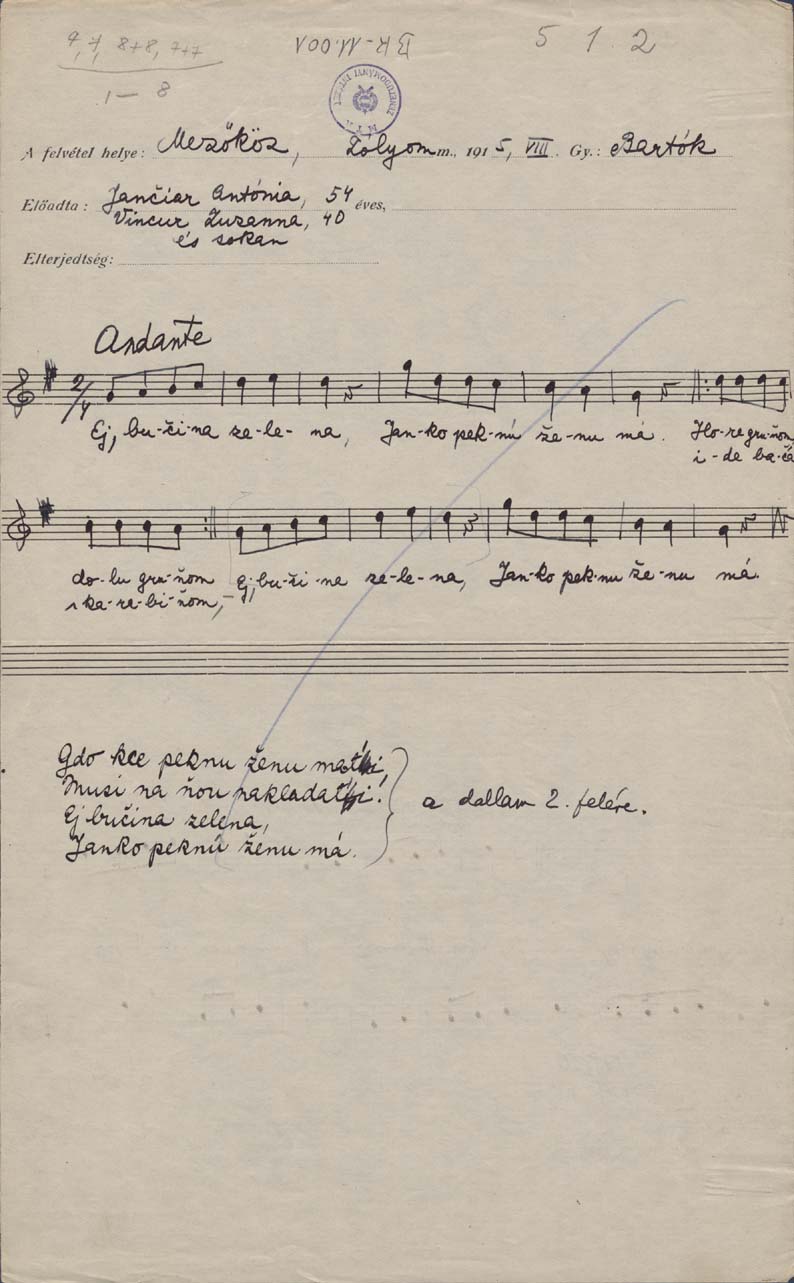 4, 7, 8+8, 7+7
1 — 8
BR-11.001
5 1 2
ZENETUDOMÁNYI INTÉZET
M T A
A felvétel helye: Mezőköz, Zolyom m., 1915, VIII. Gy.: Bartók
Előadta: Jančiar Antónia, 54 éves,
Vincur Zuzanna, 40
és sokan
Elterjedtség:
Andante
2/4
Ej, bu-či-na ze-le-na, Jan-ko pek-nú že-nu má. Ho-re gru-ňom
i-de ba-ča
do-lu gru-ňom Ej, bu-či-na ze-le-na, Jan-ko pek-nu že-nu má.
s ka-ra-bi-ňom,-
Gdo kce peknu ženu mať,
Musí na ňou nakladať!
Ej bučina zelena,
Janko peknú ženu má.
a dallam 2. felére.